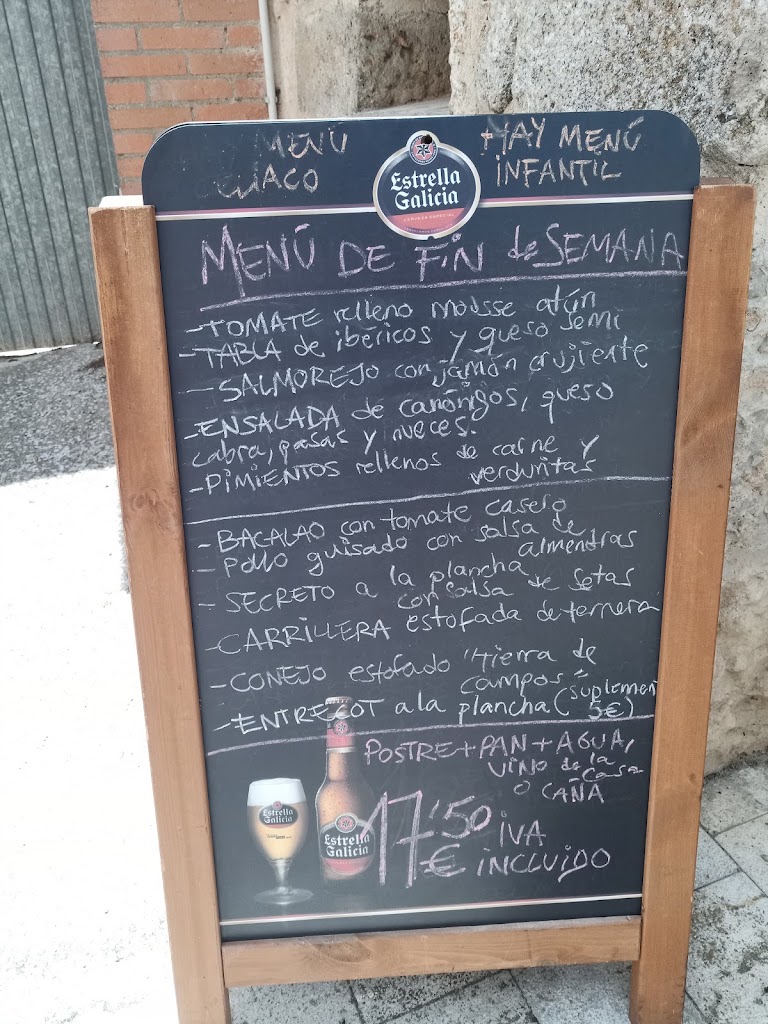 MENÚ
HAY MENÚ
INFANTIL
Estrella
Galicia
CERVEZA ESPECIAL
MENÚ DE FIN de SEMANA
-TOMATE relleno mousse atún
-TABLA de ibéricos y queso semi
-SALMOREJO con jamón crujiente
-ENSALADA de canónigos, queso
cabra, pasas y nueces.
-PIMIENTOS rellenos de carne y
verduritas
-BACALAO con tomate casero
-POLLO guisado con salsa de
almendras
-SECRETO a la plancha
con salsa de setas
-CARRILLERA estofada de ternera
-CONEJO estofado "tierra de
campos"
-ENTRECOT a la plancha (suplemen
5€)
POSTRE+PAN+AGUA,
VINO de la
Casa
O CAÑA
17'50
€ IVA
INCLUIDO
Estrella
Galicia
Estrella
Galicia